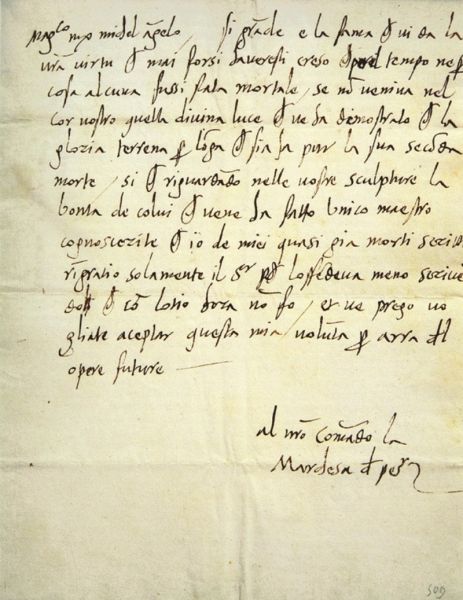 Mag.co m.o michel āgelo / si grāde e la fama ch vi da la
vr̄a virtu ch mai forsi havereti creso ch per tempo ne per
cosa alcuna fussi stata mortale / se nō veniva nel
cor vostro quella divina luce ch ve ha demostrato ch la
gloria terrena per lōga ch sia ha pur la sua secōda
morte / si ch riguardādo nelle vostre sculpture la
bonta de colui ch vene ha fatto unico maestro
cognoscerite ch io de miei quasi gia morti scritti
rīgratio solamente il Sr perche loffedeva meno scrivē
doli ch cō lotio hora nō fo / et ve prego vo
gliate aceptar questa mia volūta per arra del
opere future
al vr̄o comādo la
Marchesa de pescr
509